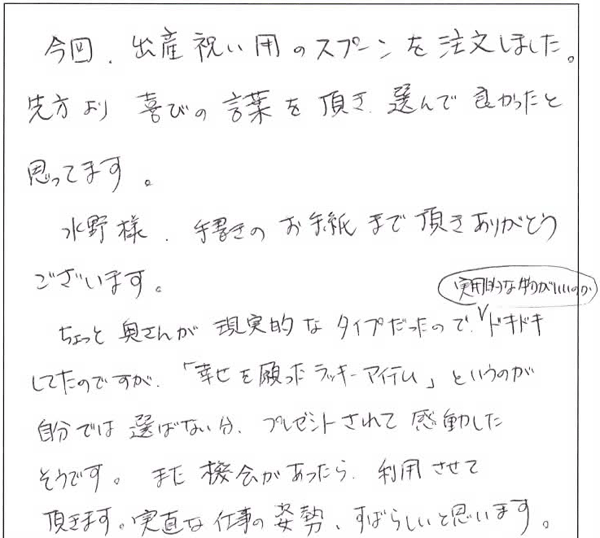 今回、出産祝い用のスプーンを注文しました。
先方より喜びの言葉を頂き、選んで良かったと
思ってます。
水野様、手書きのお手紙まで頂きありがとう
ございます。
実用的な物がいいのか
ちょっと奥さんが現実的なタイプだったので、ドキドキ
してたのですが、「幸せを願ったラッキーアイテム」というのが
自分では選ばない分、プレゼントされて感動した
そうです。また機会があったら、利用させて
頂きます。実直な仕事の姿勢、すばらしいと思います。